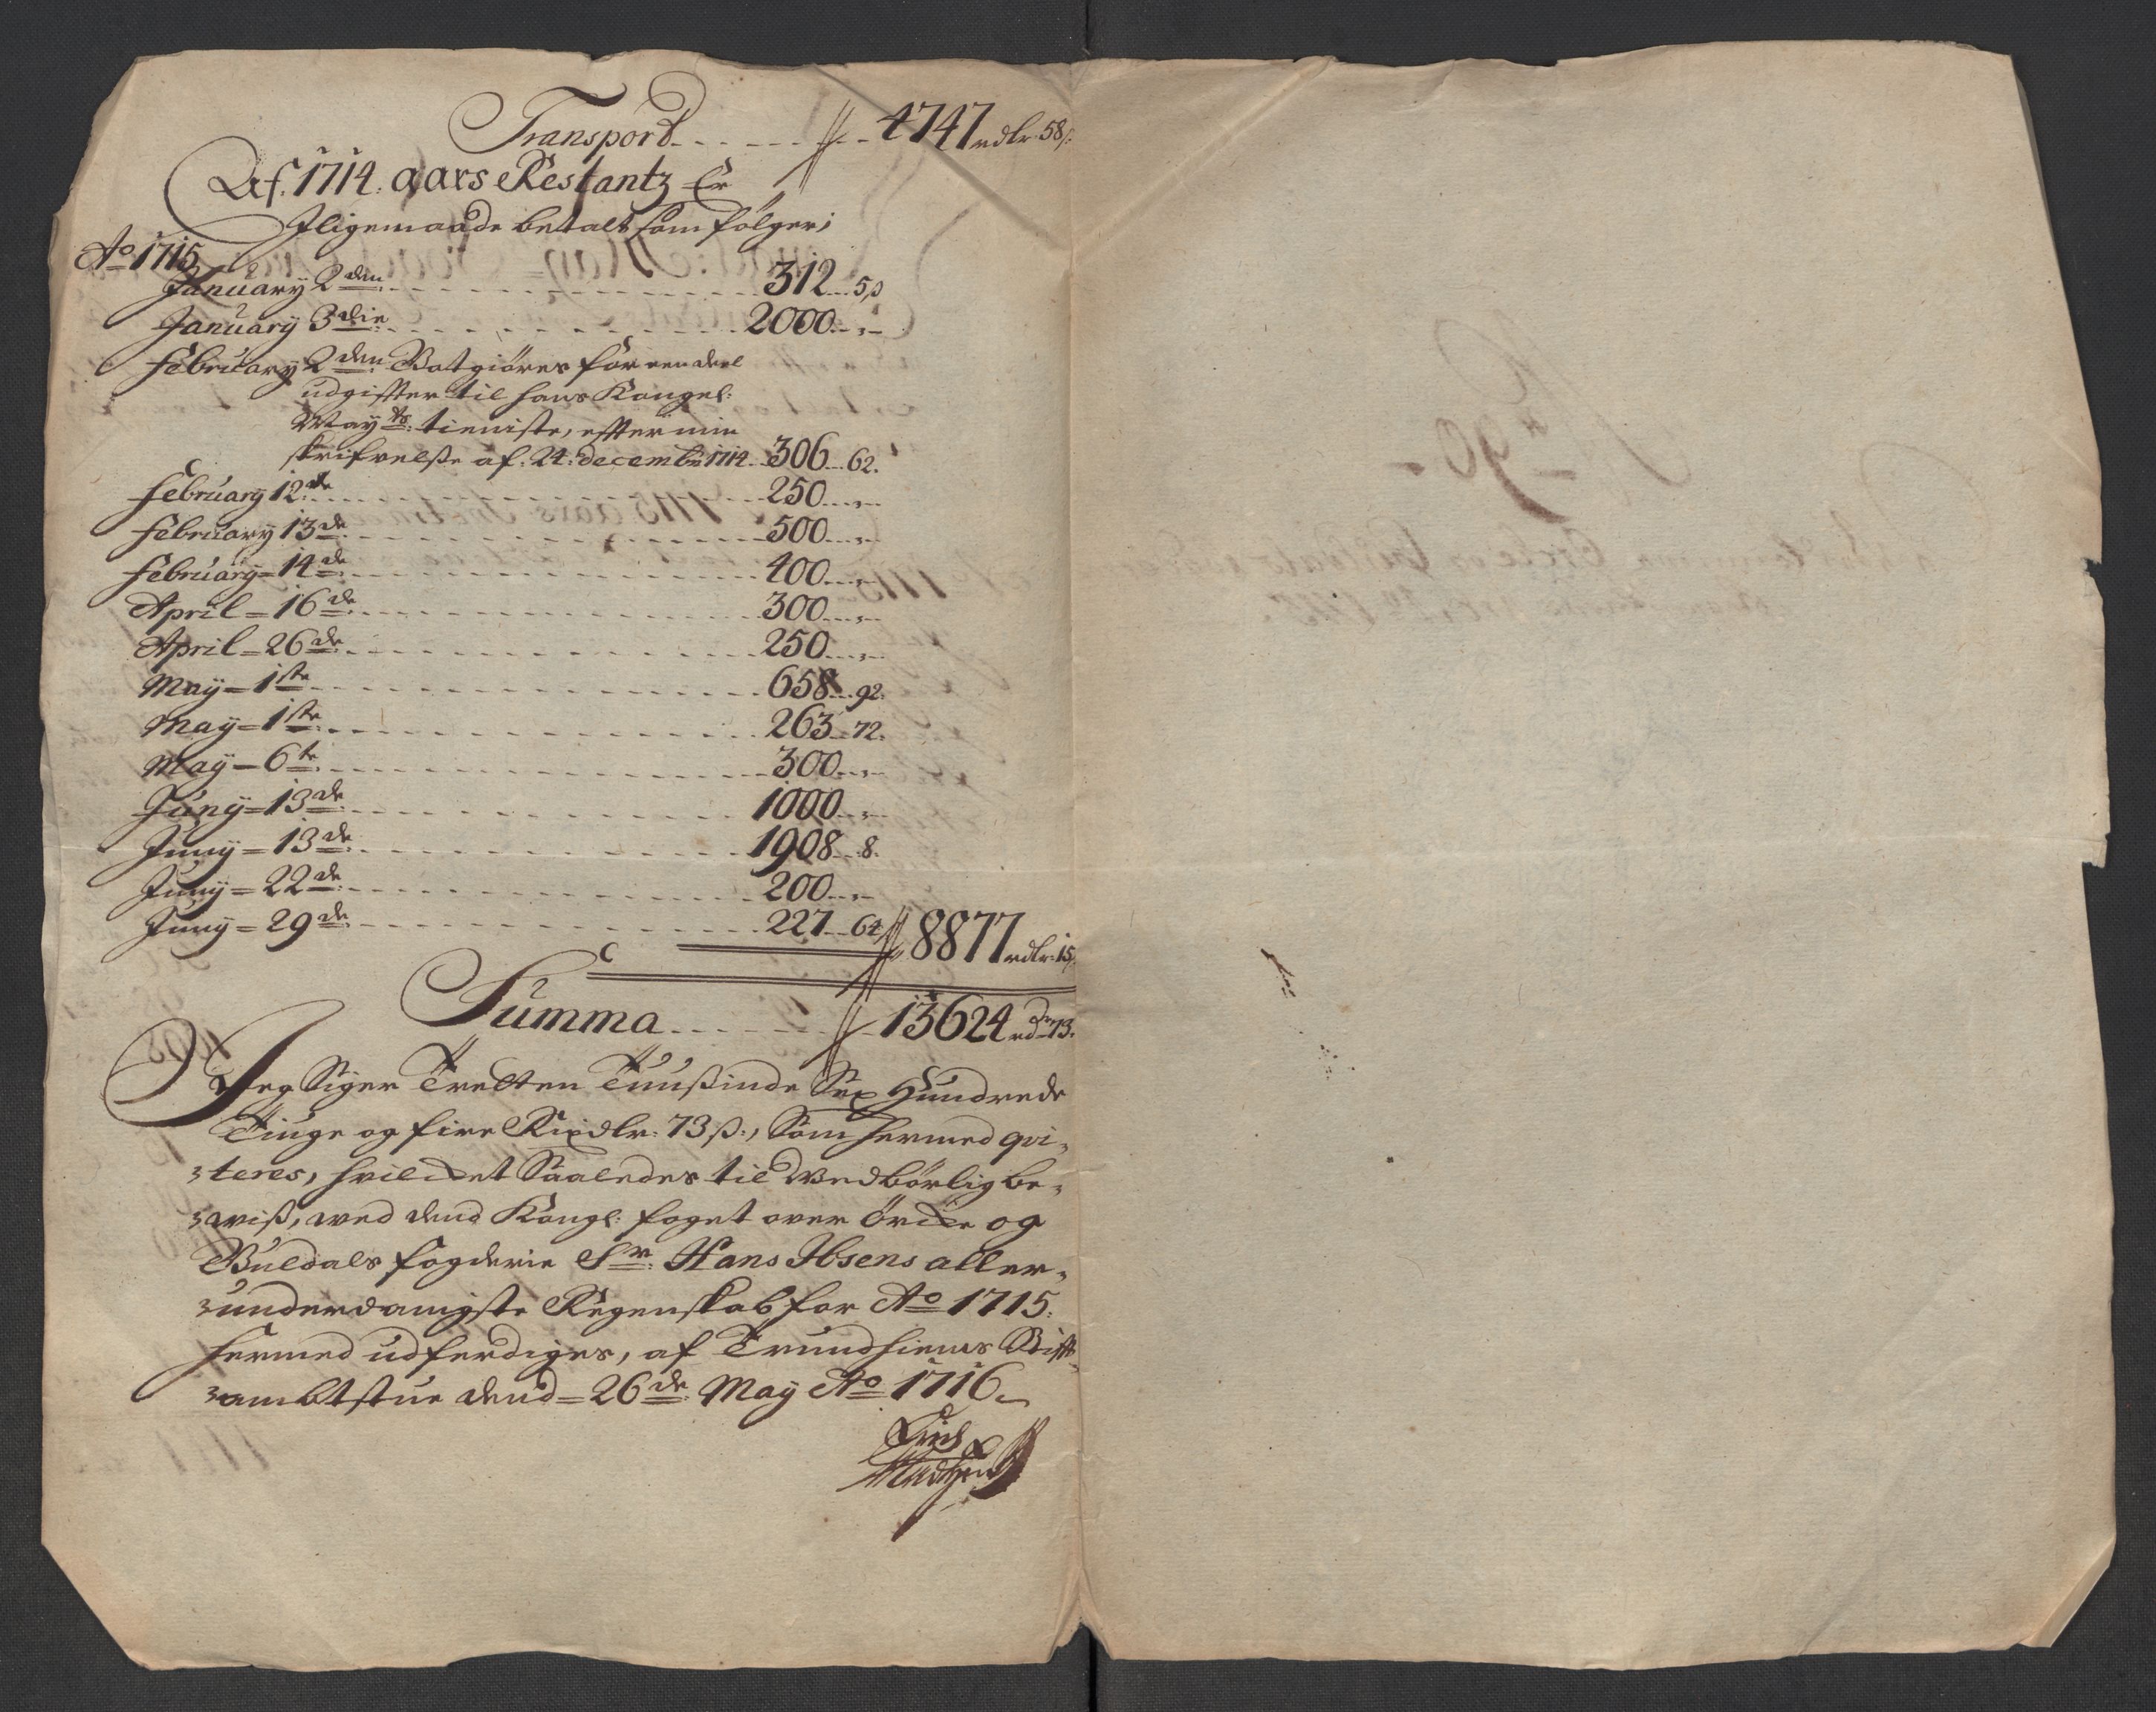 Transport - - - - - - 4747 rdlr 58 ß
Af. 1714. aars Restantz Er
Jligemaade betalt som følger;
Ao 1715
January 2den - - - 312 - 5 ß
January 3die - - - 2000 - „ -
February 2den Botgiöres for een deel
udgiffter til hans Kongel:
May ts: tieniste, effter min
skrifvelsse af. 24: decembr 1714 - 306 - 62.
February 12de - - - 250 - „ -
February 13de - - - 500 - „ -
February = 14de - - - 400 - „ -
April = 16de - - - 300 - „ -
April = 26de - - - 250 - „ -
May = 1ste - - - 658 - 92.
May = 1ste - - - 263 - 72.
May = 6te - - - 300 - „ -
Juny = 13de - - - 1000 - „ -
Juny = 13de - - - 1908 - 8.
Juny = 22de - - - 200 - „ -
Juny = 29de - - - 227 - 64 8877 rdlr 15
Summa - - - - 13624 rdr 73.
Jeg Siger Tretten Tuusinde Sex Hundrede
Tiuge og fire Rixdlr: 73 ß:, Som hermed qvi„
„teres, hvilcket Saaledes til Wedbørlig be„
„wiß, wed dend Kongl: foget over Örcke og
Guldals fogderie Sr: Hans Ibsens aller„
„underdanigste Regenskab for Ao 1715.
hermed udferdiges, af Trundhiems Stift„
„ambtstue dend = 26de May Ao 1716.
No 90